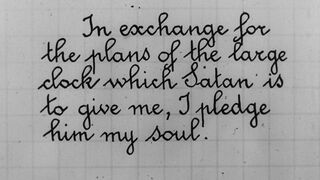 In exchange for
the plans of the large
clock which Satan is
to give me, I pledge
him my soul.